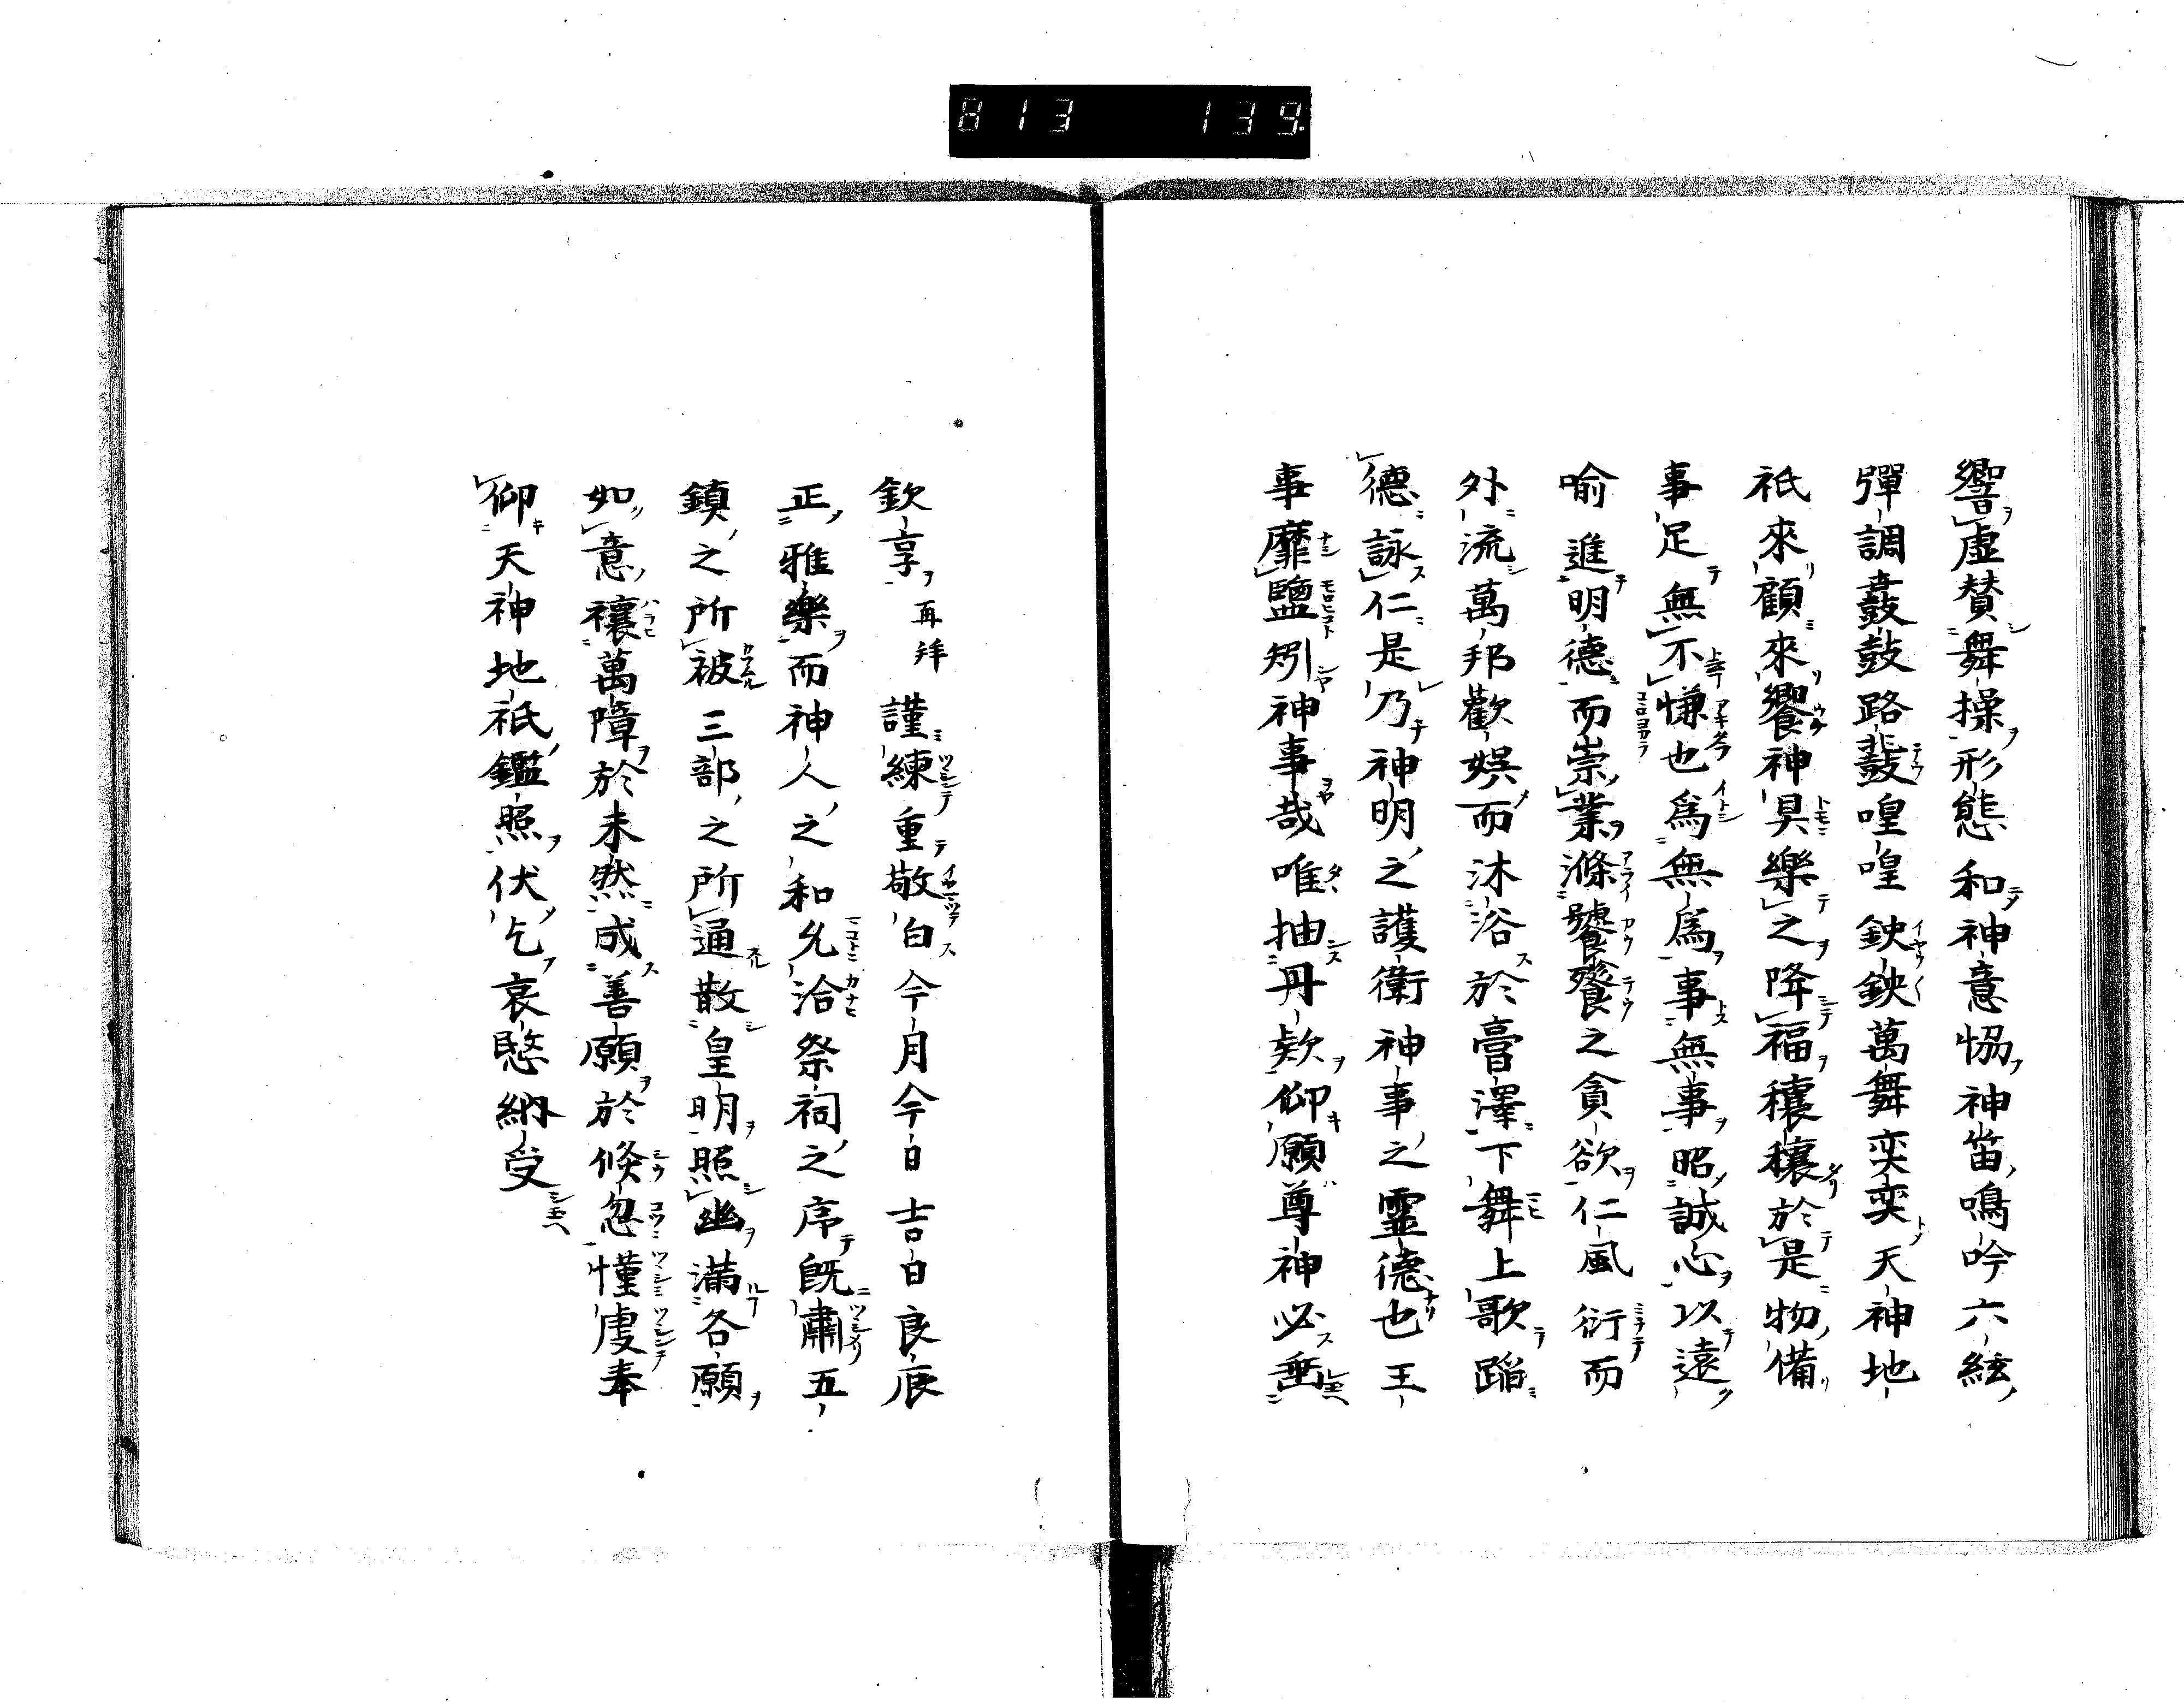 813 139
響虚賛舞操形態和神意恊神笛鳴吟六絃
彈調鼖鼓路鼗喤喤鉠鉠萬舞奕奕天神地
祇來顧來饗神具樂之降福穰穰於是物備
事足無不慊也爲無爲事無事昭誠心以遠
喻進明德而崇業滌饕餮之貪欲仁風衍而
外流萬邦歡娯而沐浴於膏澤下舞上歌蹈
德詠仁是乃神明之護衛神事之靈德也王
事靡盬矧神事哉唯抽丹欵仰願尊神必垂
欽享再拜謹練重敬白今月今日吉日良辰
正雅樂而神人之和允洽祭祠之序既肅五
鎮之所被三部之所逼散皇明照幽滿各願
如意禳萬障於未然成善願於倐忽慬虔奉
仰天神地祇鑑照伏乞哀愍納受